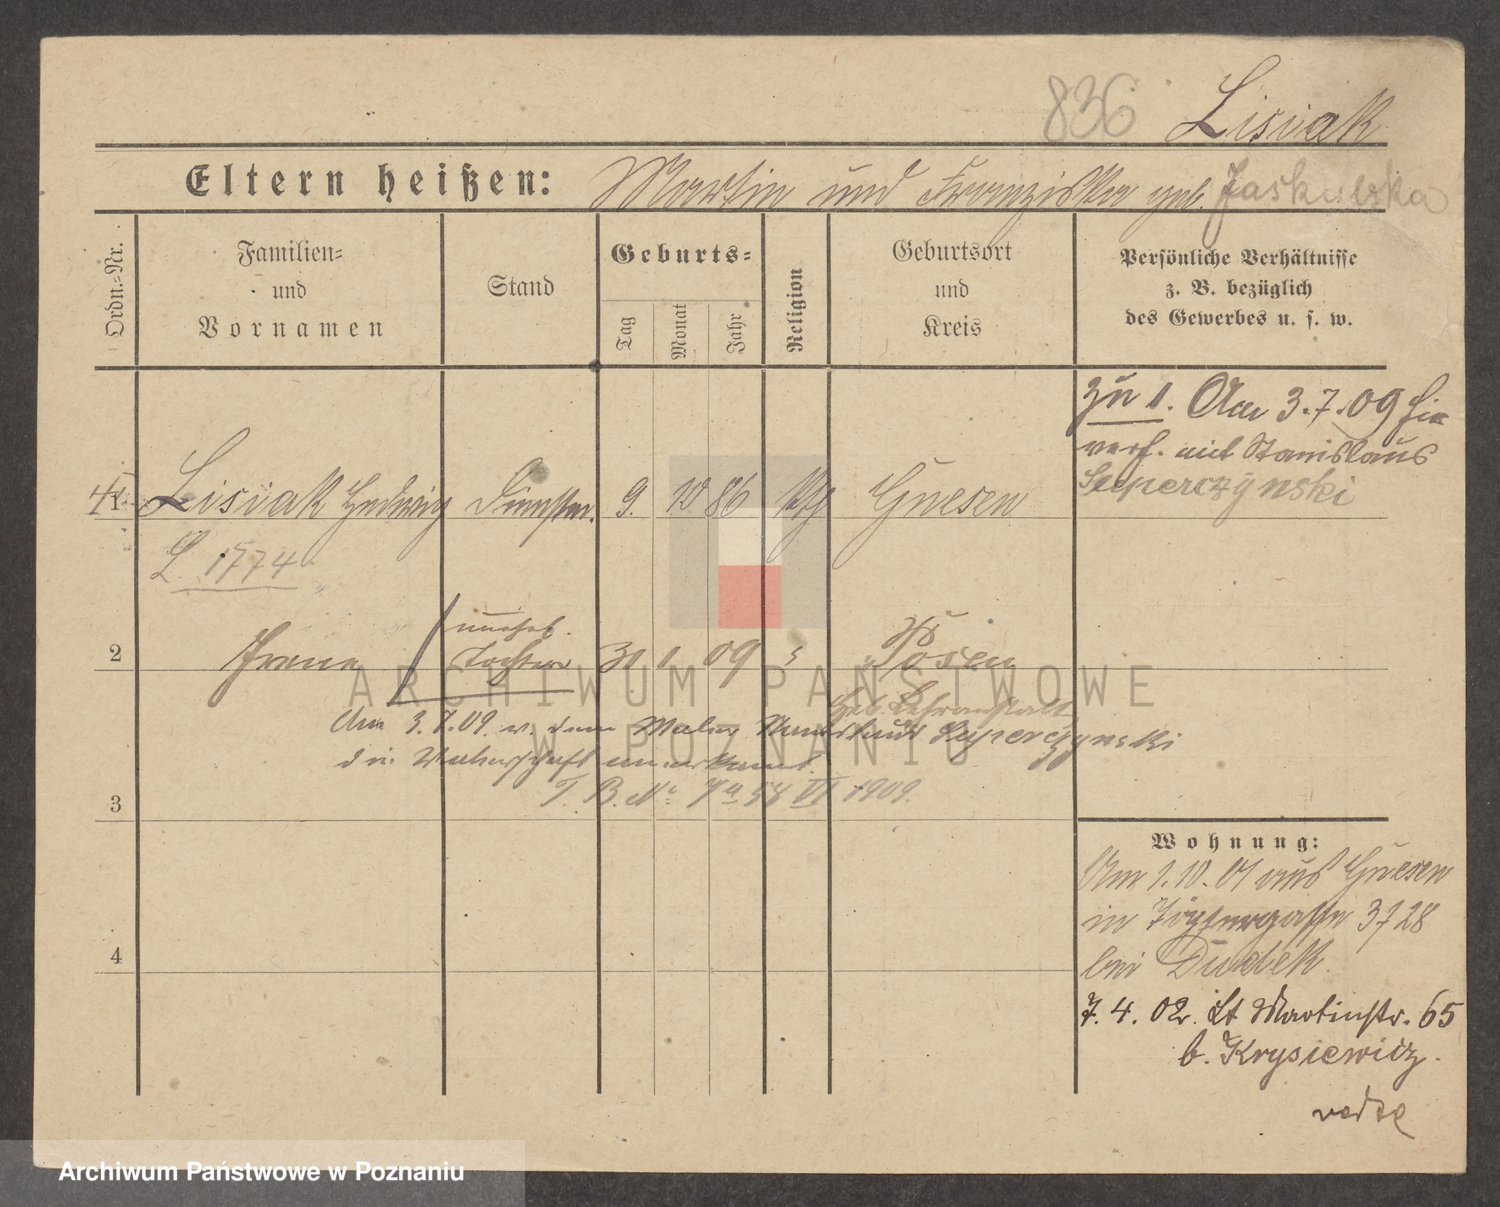 836 Lisiak
Eltern heißen: Martin und Franziska geb. Jaskulska
Ordn.-Nr.
Familien-
und
Vornamen
Stand
Geburts-
Tag
Monat
Jahr
Religion
Geburtsort
und
Kreis
Persönliche Verhältnisse
z. B. bezüglich
des Gewerbes u. s. w.
zu 1. Am 3.7.09 hier
verh. mit Stanislaus
Superczynski
1 Lisiak Hedwig Dienstm. 9. 10 86 kth Gnesen
L. 1774
unehel.
2 Irene Tochter 30 1 09 Posen
Heb. Lehranstalt
Am 3.7.09. v. dem Maler Stanislaus Superczynski
die Vaterschaft anerkannt.
T. B. No 58 VI 1909.
3
4
Wohnung:
Am 1.10.01 aus Gnesen
in 37/28
bei Dudek.
7. 4. 02. St Martinstr. 65
b. Krysiewicz.
ARCHIWUM PAŃSTWOWE
W POZNANIU
Archiwum Państwowe w Poznaniu